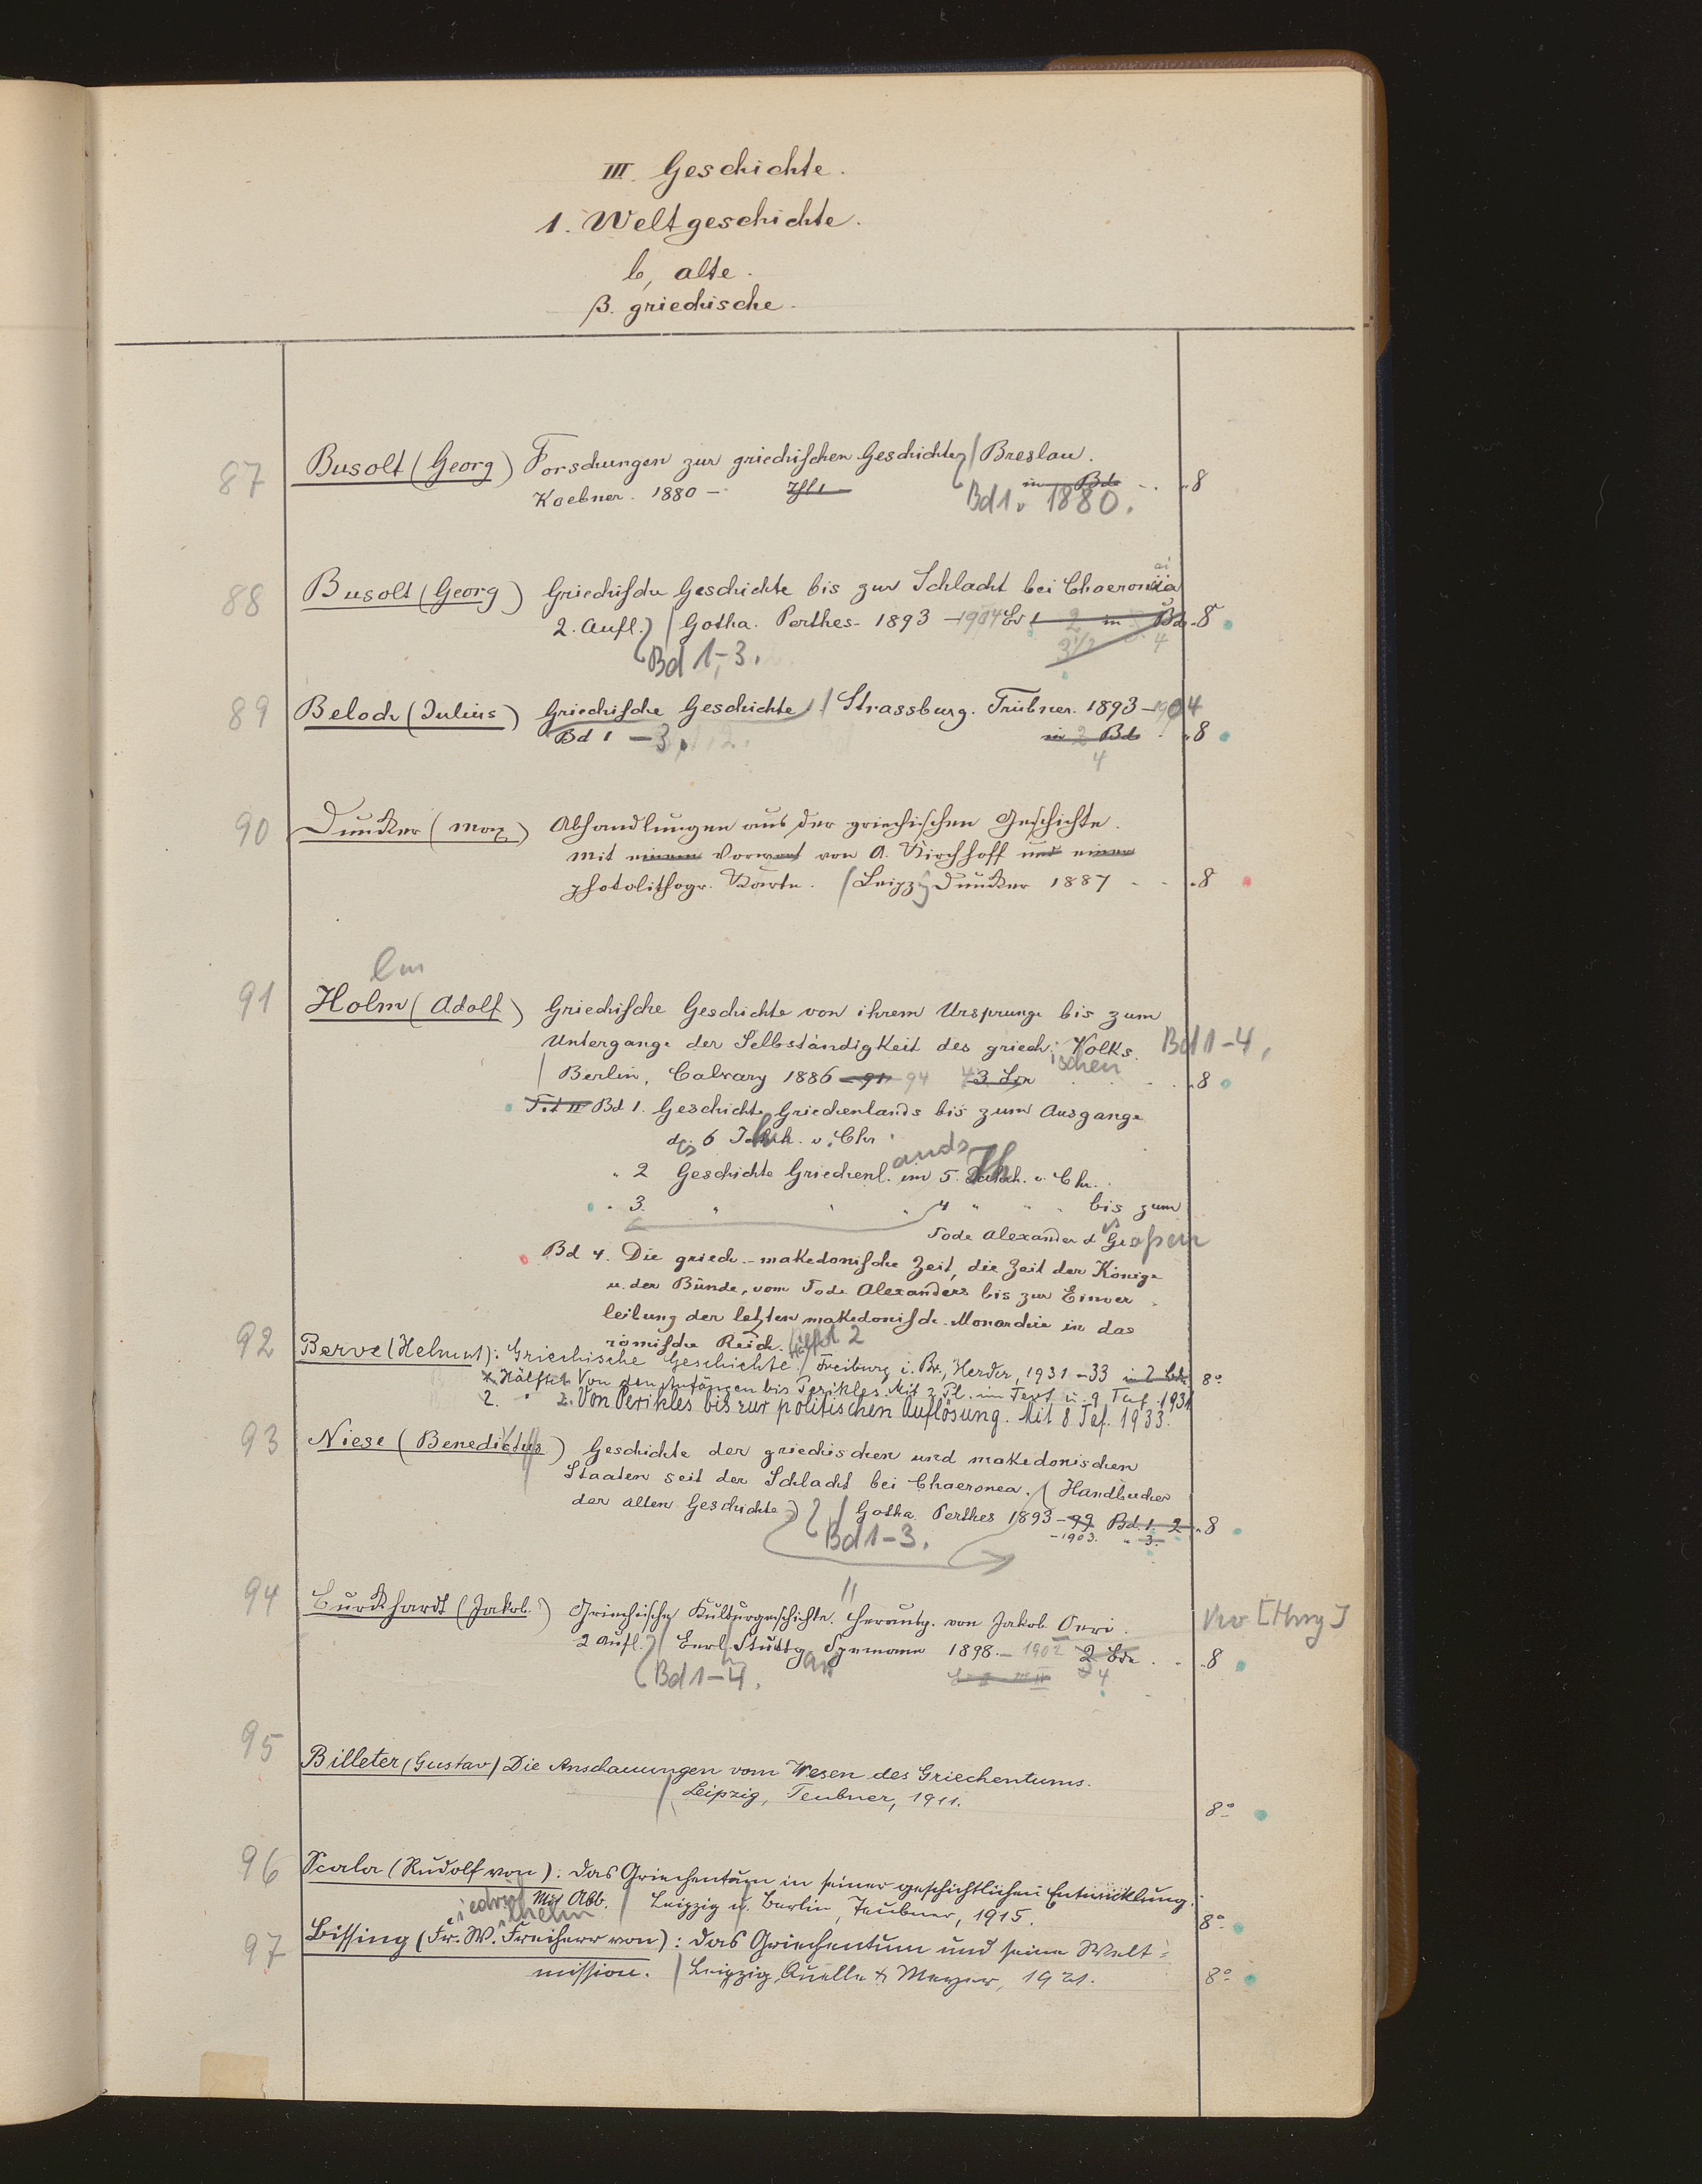 III. Geschichte.
1. Weltgeschichte.
b, alte.
β. griechische.
87 Busolt (Georg) Forschungen zur griechischen Geschichte / Breslau.
Koebner. 1880 – Thl 1 in Bd 8
Bd 1. 1880.
88 Busolt (Georg) Griechische Geschichte bis zur Schlacht bei Chaeroneia
2. Aufl. / Gotha. Perthes. 1893 – 1904 2 in Bde 8°
Bd 1-3. 3 1/2 4
89 Beloch (Julius) Griechische Geschichte / Strassburg. Trübner. 1893 – 1904
Bd 1 – 3. in 2 Bd 8
4
90 Duncker (Max) Abhandlungen aus der griechischen Geschichte.
Mit einem Vorwort von A. Kirchhoff und einer
photolithogr. Karte. / Leipzg Duncker 1887 8
lm
91 Holm (Adolf) Griechische Geschichte von ihrem Ursprunge bis zum
Untergange der Selbständigkeit des griech. Volks. Bd 1-4,
ischen
/ Berlin, Calvary 1886 – 91 94 3 8
Bd 1. Geschichte Griechenlands bis zum Ausgange
des 6 Jahrh. v. Chr.
" 2 Geschichte Griechenl. ands im 5. Jahrh. v. Chr.
" 3. " " " 4 " " " bis zum
Tode Alexander d Großen
Bd 4. Die griech.-makedonische Zeit, die Zeit der Könige
u. der Bünde, vom Tode Alexanders bis zur Einver
leibung der letzten makedonisch. Monarchie in das
römische Reich.
92 Berve (Helmut): Griechische Geschichte. Hälfte 2 / Freiburg i. Br., Herder, 1931 – 33 in 2 Bde 8°
Hälfte 1. Von den Anfängen bis Perikles. Mit 2 Pl. im Text u. 9 Taf. 1931
2. " 2. Von Perikles bis zur politischen Auflösung. Mit 8 Taf. 1933.
93 Niese (Benedictus) Geschichte der griechischen und makedonischen
Staaten seit der Schlacht bei Chaeronea. (Handbücher
der alten Geschichte) / Gotha. Perthes 1893 – 99 Bd. 1. 2 8
Bd 1-3. – 1903. " 3.
94 Burckhardt (Jakob.) Griechische Kulturgeschichte. Herausg. von Jakob Oeri.
2 Aufl. / Berl. Stuttg Spemann 1898. – 1902 2 Bde 8
Bd 1-4. 4
95 Billeter (Gustav) Die Anschauungen vom Wesen des Griechentums.
/ Leipzig, Teubner, 1911. 8°
96 Scala (Rudolf von): Das Griechentum in seiner geschichtlichen Entwicklung.
Mit Abb. / Leipzig u. Berlin, Teubner, 1915. 8°
iedrich ilhelm
97 Bissing (Fr. W. Freiherr von): Das Griechentum und seine Welt=
mission. / Leipzig, Quelle & Meyer, 1921. 8°